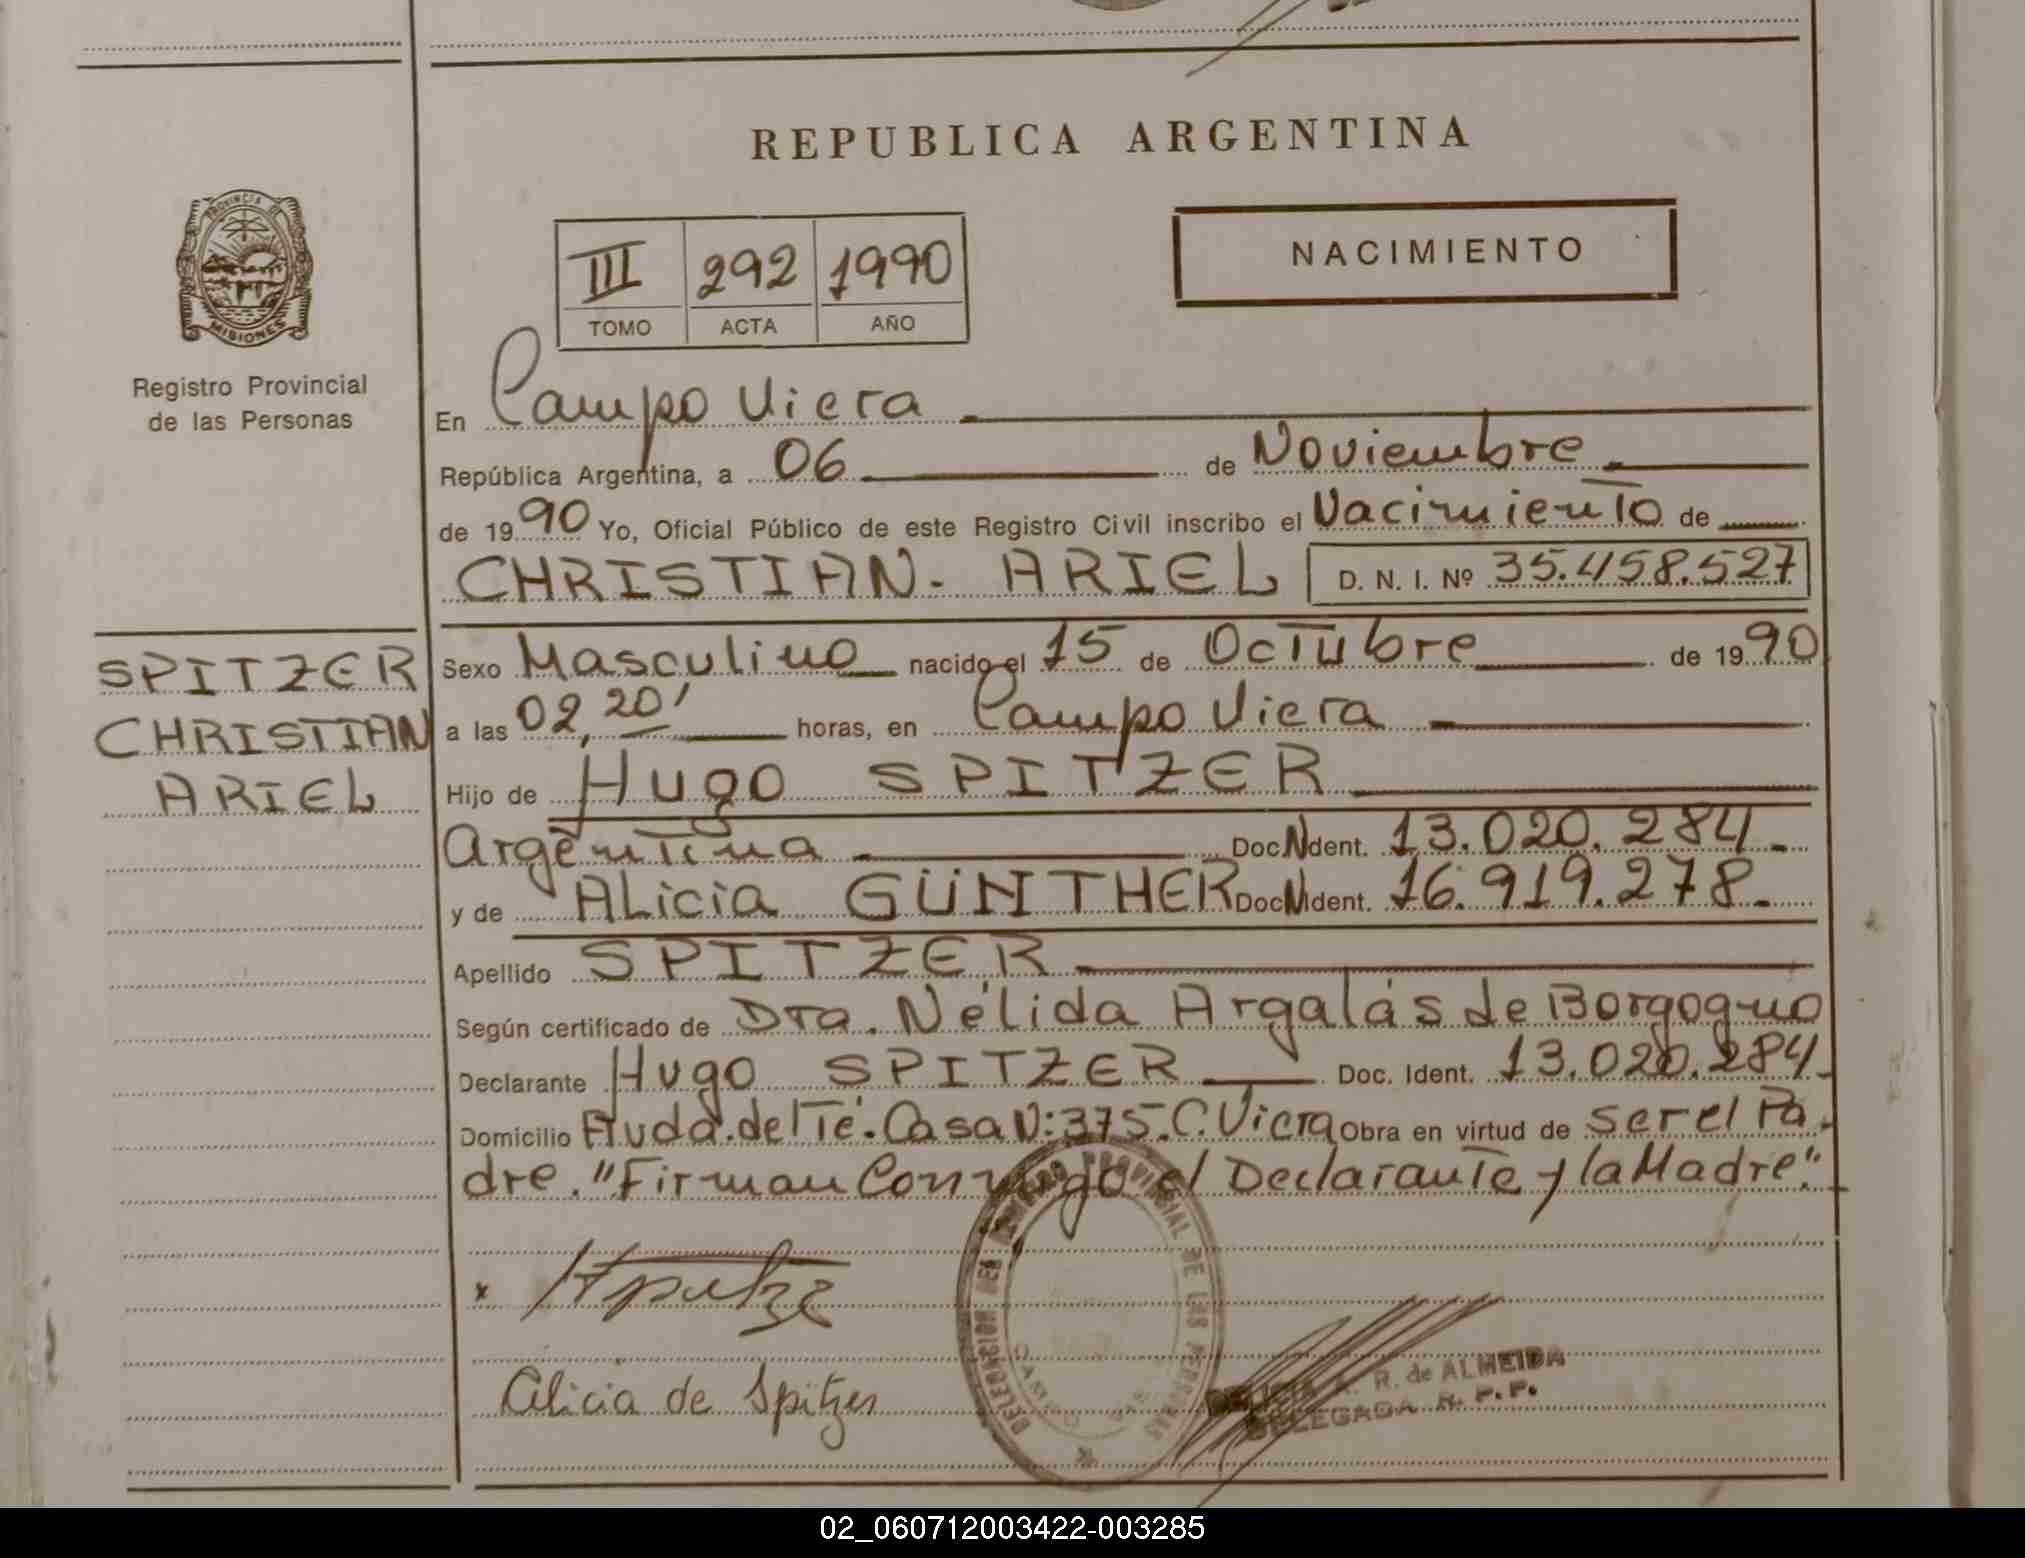 REPUBLICA ARGENTINA
PROVINCIA DE
MISIONES
Registro Provincial
de las Personas
III 292 1990
TOMO ACTA AÑO
NACIMIENTO
En Campo Viera
República Argentina, a 06 de Noviembre
de 1990 Yo, Oficial Público de este Registro Civil inscribo el Nacimiento de
CHRISTIAN. ARIEL D. N. I. Nº 35.458.527
SPITZER
CHRISTIAN
ARIEL
Sexo Masculino nacido el 15 de Octubre de 1990
a las 02,20' horas, en Campo Viera
Hijo de Hugo SPITZER
Argentina Doc. Ident. 13.020.284.
y de ALicia GÜNTHER Doc. Ident. 16.919.278.
Apellido SPITZER
Según certificado de Dra. Nélida Argalás de Borgogno
Declarante Hugo SPITZER Doc. Ident. 13.020.284.
Domicilio Avda. del Té. Casa N: 375. C. Viera Obra en virtud de ser el Pa.
dre. "Firman Conmigo el Declarante y la Madre".
Alicia de Spitzer
DELEGACION DEL REGISTRO PROVINCIAL DE LAS PERSONAS
CAMPO
R. de ALMEIDA
DELEGADA R. P. P.
02_060712003422-003285